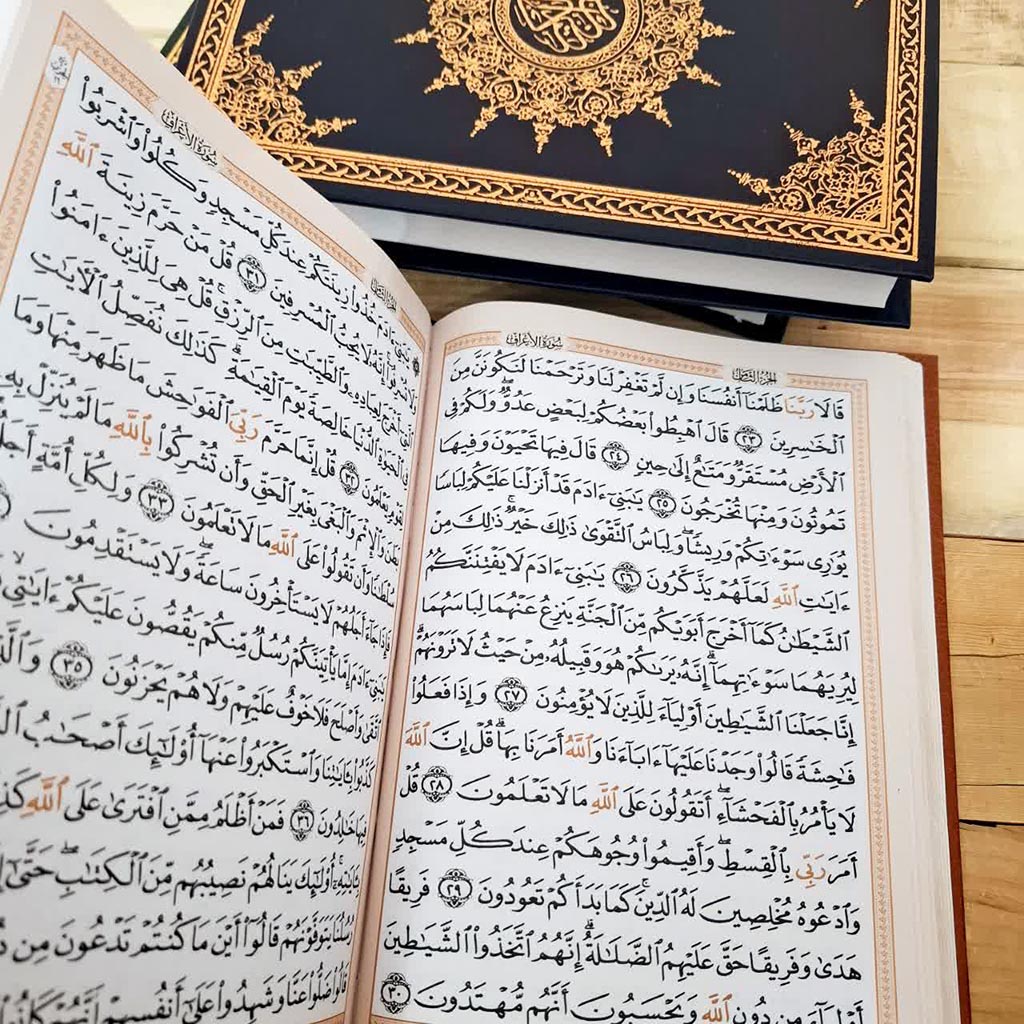 الجُزْءُ الثَّامِنُ
سُورَةُ الأَعْرَافِ
قَالَا رَبَّنَا ظَلَمْنَآ أَنفُسَنَا وَإِن لَّمْ تَغْفِرْ لَنَا وَتَرْحَمْنَا لَنَكُونَنَّ مِنَ
ٱلْخَٰسِرِينَ ٢٣ قَالَ ٱهْبِطُوا۟ بَعْضُكُمْ لِبَعْضٍ عَدُوٌّ ۖ وَلَكُمْ فِى
ٱلْأَرْضِ مُسْتَقَرٌّ وَمَتَٰعٌ إِلَىٰ حِينٍ ٢٤ قَالَ فِيهَا تَحْيَوْنَ وَفِيهَا
تَمُوتُونَ وَمِنْهَا تُخْرَجُونَ ٢٥ يَٰبَنِىٓ ءَادَمَ قَدْ أَنزَلْنَا عَلَيْكُمْ لِبَاسًا
يُوَٰرِى سَوْءَٰتِكُمْ وَرِيشًا ۖ وَلِبَاسُ ٱلتَّقْوَىٰ ذَٰلِكَ خَيْرٌ ۚ ذَٰلِكَ مِنْ
ءَايَٰتِ ٱللَّهِ لَعَلَّهُمْ يَذَّكَّرُونَ ٢٦ يَٰبَنِىٓ ءَادَمَ لَا يَفْتِنَنَّكُمُ
ٱلشَّيْطَٰنُ كَمَآ أَخْرَجَ أَبَوَيْكُم مِّنَ ٱلْجَنَّةِ يَنزِعُ عَنْهُمَا لِبَاسَهُمَا
لِيُرِيَهُمَا سَوْءَٰتِهِمَآ ۗ إِنَّهُۥ يَرَىٰكُمْ هُوَ وَقَبِيلُهُۥ مِنْ حَيْثُ لَا تَرَوْنَهُمْ ۗ
إِنَّا جَعَلْنَا ٱلشَّيَٰطِينَ أَوْلِيَآءَ لِلَّذِينَ لَا يُؤْمِنُونَ ٢٧ وَإِذَا فَعَلُوا۟
فَٰحِشَةً قَالُوا۟ وَجَدْنَا عَلَيْهَآ ءَابَآءَنَا وَٱللَّهُ أَمَرَنَا بِهَا ۗ قُلْ إِنَّ ٱللَّهَ
لَا يَأْمُرُ بِٱلْفَحْشَآءِ ۖ أَتَقُولُونَ عَلَى ٱللَّهِ مَا لَا تَعْلَمُونَ ٢٨ قُلْ
أَمَرَ رَبِّى بِٱلْقِسْطِ ۖ وَأَقِيمُوا۟ وُجُوهَكُمْ عِندَ كُلِّ مَسْجِدٍ
وَٱدْعُوهُ مُخْلِصِينَ لَهُ ٱلدِّينَ ۚ كَمَا بَدَأَكُمْ تَعُودُونَ ٢٩ فَرِيقًا
هَدَىٰ وَفَرِيقًا حَقَّ عَلَيْهِمُ ٱلضَّلَٰلَةُ ۗ إِنَّهُمُ ٱتَّخَذُوا۟ ٱلشَّيَٰطِينَ
أَوْلِيَآءَ مِن دُونِ ٱللَّهِ وَيَحْسَبُونَ أَنَّهُم مُّهْتَدُونَ ٣٠
الجُزْءُ الثَّامِنُ
سُورَةُ الأَعْرَافِ
يَٰبَنِىٓ ءَادَمَ خُذُوا۟ زِينَتَكُمْ عِندَ كُلِّ مَسْجِدٍ وَكُلُوا۟ وَٱشْرَبُوا۟
وَلَا تُسْرِفُوٓا۟ ۚ إِنَّهُۥ لَا يُحِبُّ ٱلْمُسْرِفِينَ ٣١ قُلْ مَنْ حَرَّمَ زِينَةَ ٱللَّهِ
ٱلَّتِىٓ أَخْرَجَ لِعِبَادِهِۦ وَٱلطَّيِّبَٰتِ مِنَ ٱلرِّزْقِ ۚ قُلْ هِىَ لِلَّذِينَ ءَامَنُوا۟
فِى ٱلْحَيَوٰةِ ٱلدُّنْيَا خَالِصَةً يَوْمَ ٱلْقِيَٰمَةِ ۗ كَذَٰلِكَ نُفَصِّلُ ٱلْءَايَٰتِ
لِقَوْمٍ يَعْلَمُونَ ٣٢ قُلْ إِنَّمَا حَرَّمَ رَبِّىَ ٱلْفَوَٰحِشَ مَا ظَهَرَ مِنْهَا وَمَا
بَطَنَ وَٱلْإِثْمَ وَٱلْبَغْىَ بِغَيْرِ ٱلْحَقِّ وَأَن تُشْرِكُوا۟ بِٱللَّهِ مَا لَمْ يُنَزِّلْ بِهِۦ
سُلْطَٰنًا وَأَن تَقُولُوا۟ عَلَى ٱللَّهِ مَا لَا تَعْلَمُونَ ٣٣ وَلِكُلِّ أُمَّةٍ أَجَلٌ
فَإِذَا جَآءَ أَجَلُهُمْ لَا يَسْتَأْخِرُونَ سَاعَةً ۖ وَلَا يَسْتَقْدِمُونَ
يَٰبَنِىٓ ءَادَمَ إِمَّا يَأْتِيَنَّكُمْ رُسُلٌ مِّنكُمْ يَقُصُّونَ عَلَيْكُمْ ءَايَٰتِى ۙ
ٱتَّقَىٰ وَأَصْلَحَ فَلَا خَوْفٌ عَلَيْهِمْ وَلَا هُمْ يَحْزَنُونَ ٣٥
كَذَّبُوا۟ بِـَٔايَٰتِنَا وَٱسْتَكْبَرُوا۟ عَنْهَآ أُو۟لَٰٓئِكَ أَصْحَٰبُ
فِيهَا خَٰلِدُونَ ٣٦ فَمَنْ أَظْلَمُ مِمَّنِ ٱفْتَرَىٰ عَلَى ٱللَّهِ
بِـَٔايَٰتِهِۦٓ ۚ أُو۟لَٰٓئِكَ يَنَالُهُمْ نَصِيبُهُم مِّنَ ٱلْكِتَٰبِ ۖ حَتَّىٰٓ
رُسُلُنَا يَتَوَفَّوْنَهُمْ قَالُوٓا۟ أَيْنَ مَا كُنتُمْ تَدْعُونَ مِن
قَالُوا۟ ضَلُّوا۟ عَنَّا وَشَهِدُوا۟ عَلَىٰٓ أَنفُسِهِمْ أَنَّهُمْ كَانُوا۟